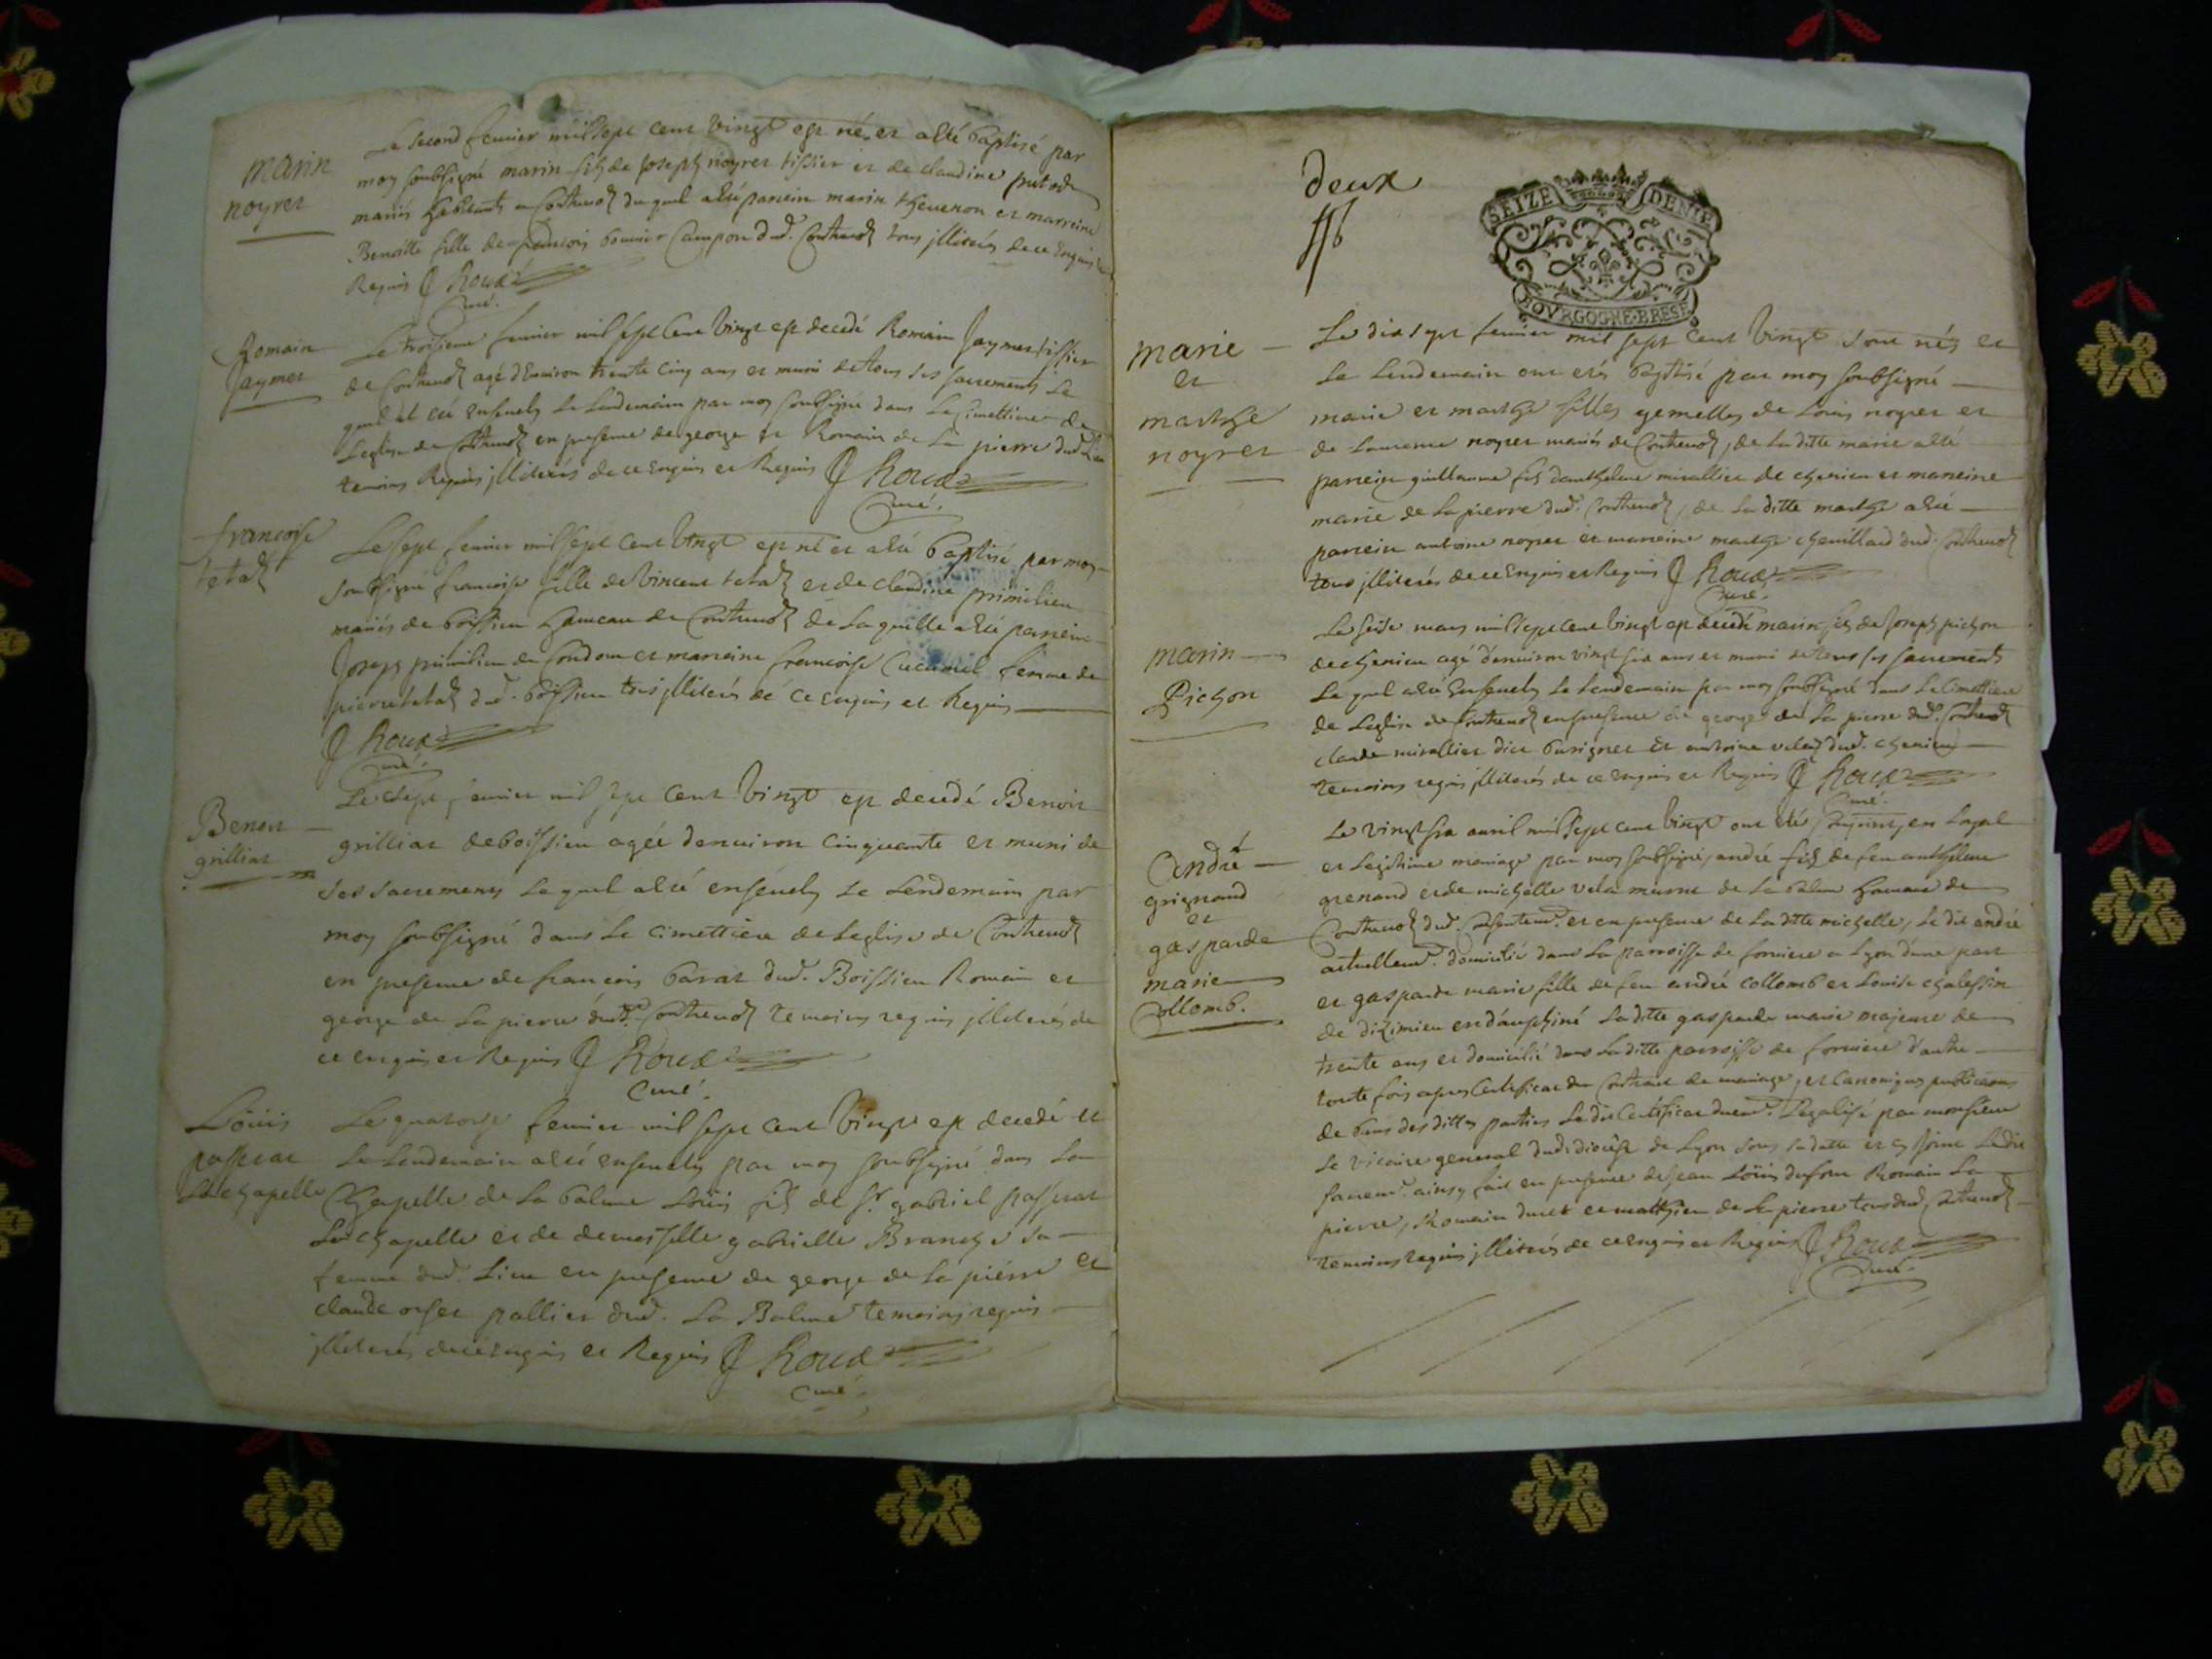 marin
noyret
Le second feuvrier mil sept cent vingt est né et a été baptisé par
moy soubsigné marin fils de Joseph noyret tissier et de claudine putod
mariés habitants a Conthrevoz du quel a été parrein marin thevenon et marreine
Benoitte fille de françois bonnier Campon dud. Conthrevoz tous jlliterés de ce Enquis et
Requis J Roux
Curé.
Romain
Jaymet
Le troisieme feuvrier mil sept cent vingt est decedé Romain Jaymet tissier
de Conthrevoz agé d'Environ trente cinq ans et muni de tous ses sacrements Le
quel at eté Ensevely Le Lendemain par moy soubsigné dans Le Cimettiere de
Leglise de Conthrevoz en presence de george et Romain de La pierre dud. Lieu
temoins Requis jlliterés de ce Enquis et Requis J Roux
Curé.
francoise
tetaz
Le sept feuvrier mil sept cent vingt est né et a été baptisé par moy
soubsigné francoise fille de vincent tetaz et de claudine primilieu
mariés de boissieu hameau de Conthrevoz de La quelle a été parrein
Joseph primilieu de et marreine francoise femme de
pierre tetaz dud. boissieu tous jlliterés de ce enquis et Requis
J Roux
Curé.
Benoit
grilliat
Le sept feuvrier mil sept cent vingt est decedé Benoit
grilliat de boissieu agée denviron cinquante et muni de
ses sacrements Le quel a été ensevely Le Lendemain par
moy soubsigné dans Le cimettiere de Leglise de Conthrevoz
en presence de francois barat dud. Boissieu Romain et
george de La pierre dud. Conthrevoz temoins requis jlliterés de
ce enquis et Requis J Roux
Curé.
Löüis
passerat
La chapelle
Le quatorze feuvrier mil sept cent vingt est decedé et
Le Lendemain a été ensevely par moy soubsigné dans La
Chapelle de La balme Löüis fils de Sr. gabriel passerat
La chapelle et de demoiselle gabrielle Branche sa
femme dud. Lieu en presence de george de La pierre et
claude orset pallier dud. La Balme temoins requis
jlliterés de ce Enquis et Requis J Roux
Curé.
deux
SEIZE DENIE
BOVRGOGNE·BRESE
marie
et
marthe
noyret
Le dix sept feuvrier mil sept cent vingt sont nés et
Le Lendemain ont etés baptisé par moy soubsigné
marie et marthe filles gemelles de Louis noyret et
de Laurence noyret mariés de Conthrevoz, de La ditte marie a été
parrein guillaume fils danthelme mirallier de chemieu et marreine
marie de La pierre dud. Conthrevoz, de La ditte marthe a été
parrein antoine noyret et marreine marthe chevillard dud. Conthrevoz
tous jlliterés de ce Enquis et Requis J Roux
Curé.
marin
Pichon
Le seise mars mil sept cent vingt est decedé marin fils de Joseph pichon
de chemieu agé denviron vingt six ans et muni de tous ses sacrements
Le quel a été Ensevely Le Lendemain par moy soubsigné dans Le Cimettiere
de Leglise de Conthrevoz en presence de george de La pierre dud. Conthrevoz
claude mirallier dit et antoine dud. chemieu
temoins requis jlliterés de ce enquis et Requis J Roux
Curé.
André
grignand
et
gasparde
marie
Collomb.
Le vingt six auril mil sept cent vingt ont été Conjoints en Loyal
et Legitime mariage par moy soubsigné, andré fils de feu anthelme
grenand et de michelle de La balme hameau de
Conthrevoz dud. Consentemt. et en presence de La ditte michelle, Le dit andré
actuellemt. domicilié dans La parroisse de forviere a Lyon d'une part
et gasparde marie fille de feu andré collomb et Louise chalessin
de dizimieu en dauphiné La ditte gasparde marie majeure de
trente ans et domicilié dans Laditte parroisse de forviere d'autre
toute fois apres Certificat du Contract de mariage, et Canoniques publications
de bans des dittes parties Le dit Certificat duemt. Legalisé par monsieur
Le vicaire general dud. diocese de Lyon sous sa datte et cy Joint Ledit
sacremt. ainsy fait en presence de Jean Löüis dufour Romain La
pierre, Romain duret et matthieu de La pierre tous dud. Conthrevoz
temoins requis jlliterés de ce enquis et Requis J Roux
Curé.